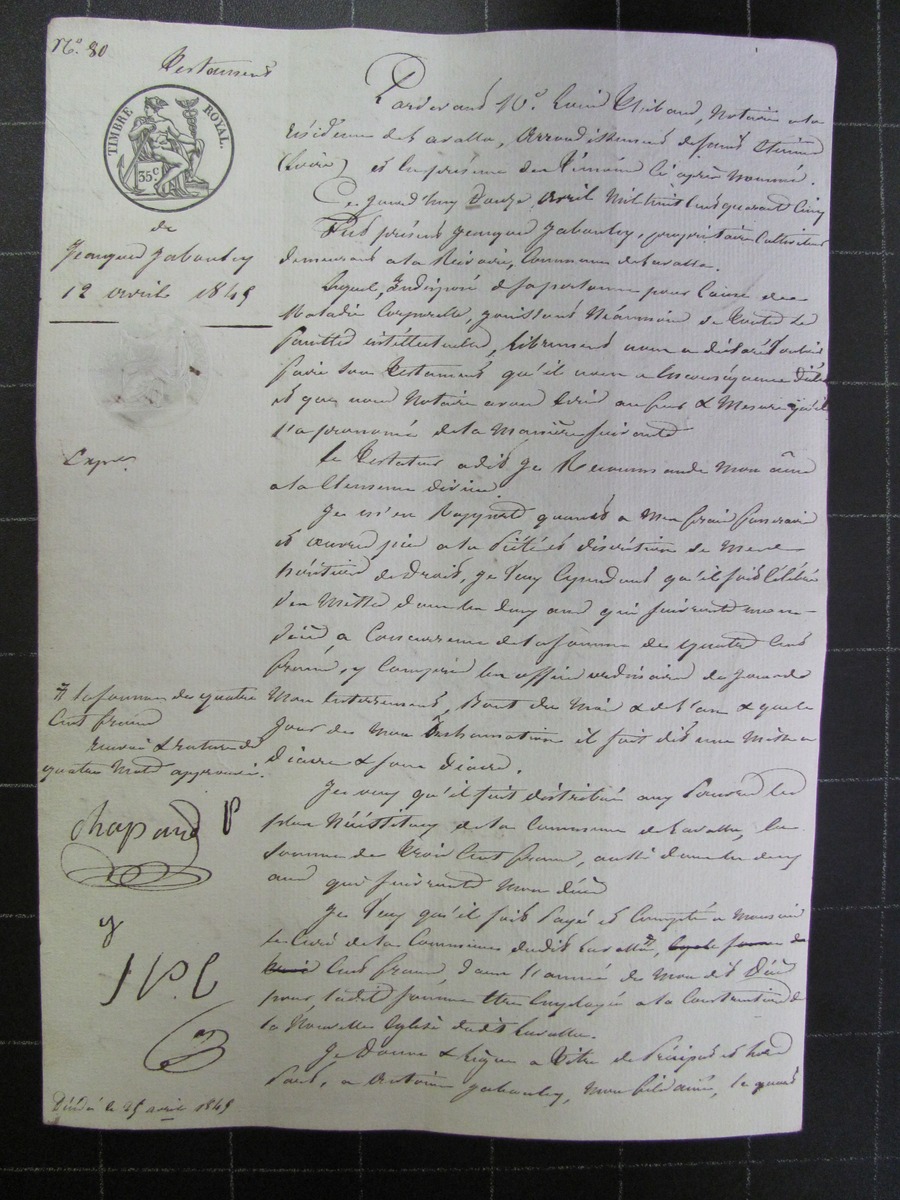 N.º 80
Testament
TIMBRE ROYAL.
35 c.
de
Jacques Jaboulay
12 avril 1845
Exp.
Pardevant Mº. Louis Thibaud, Notaire à la
résidence de Lavalla, arrondissement de Saint Etienne
(Loire) et en présence des témoins ci après nommés.
Ce jourd'huy Douze avril Mil huit cent quarante cinq
Fut présent Jacques Jaboulay, propriétaire cultivateur
demeurant à la Rivoire, Commune de Lavalla.
Lequel, Indisposé de sa personne pour Cause de
Maladie Corporelle, jouissant néanmoins de toutes ses
facultés intellectuelles, librement nous a déclaré vouloir
faire son Testament qu'il nous a en conséquence dicté
et que nous Notaire avons écrit au fur & Mesure qu'il
l'a prononcé de la Manière suivante
Le Testateur a dit Je Recommande Mon âme
à la Clemence divine
Je m'en Rapporte quant à Mes frais funéraires
et œuvres pies à la Piété et discrétion de mes
héritiers de droit, Je veux cependant qu'il soit célébré
des Messes dans les deux ans qui suivront mon
décès à Concurrence de la somme de quatre Cent
francs, y Compris les offices ordinaires des jours de
Mon Enterrement, Bout du Mois & de l'an & que le
jour de Mon Inhumation il soit dit une Messe à
Diacre & sous Diacre.
Je veux qu'il soit distribué aux Pauvres les
plus Nécessiteux de la Commune de Lavalla, la
somme de Trois Cent francs, aussi dans les deux
ans qui suivront Mon décès
Je veux qu'il soit Payé et Compté à Monsieur
le Curé de la Commune dudit Lavalla, la somme de
Cent francs, dans l'année de Mon dit Décès
pour ladite somme être Employée à la Construction de
la Nouvelle Eglise dudit Lavalla.
Je Donne & Lègue à Titre de Préciput et hors
Part, à Antoine Jaboulay, Mon fils ainé, le quart
la somme de quatre
Cent francs
renvoi & rature de
quatre Mots approuvés.
Chapard P
y
J P. C
Décédé le 25 avril 1845